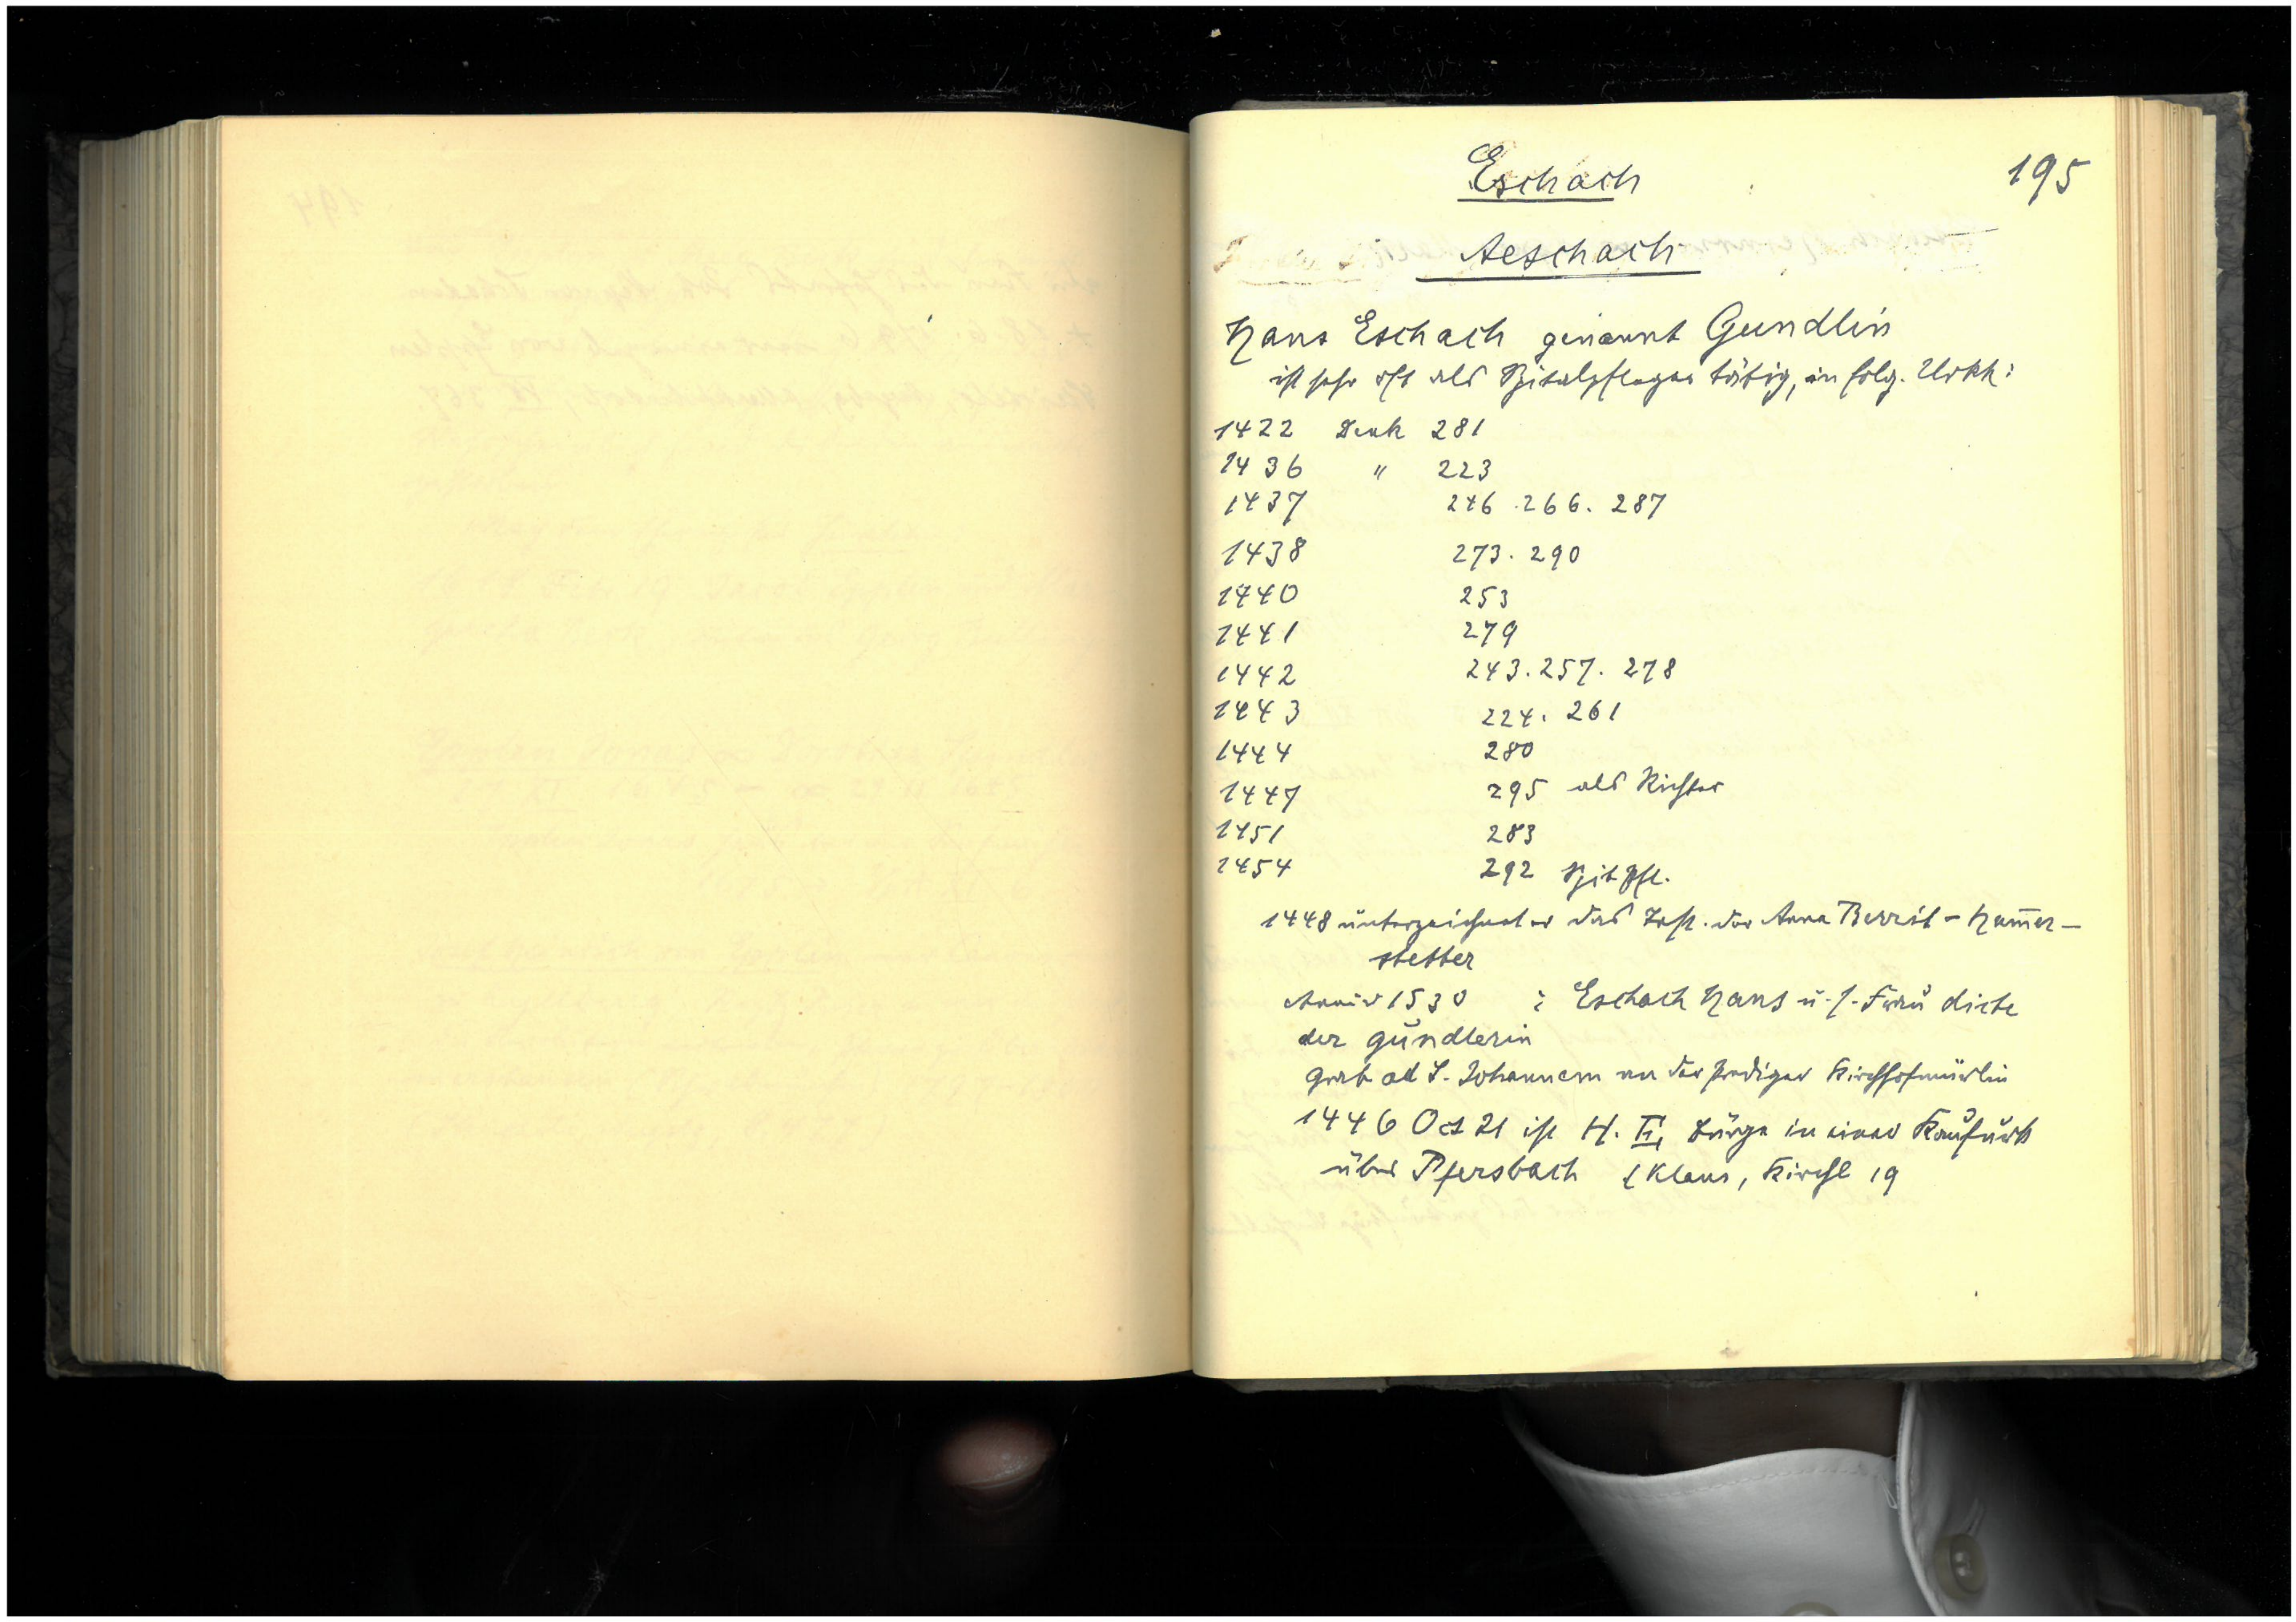 195
Eschach
Aeschach
Hans Eschach genannt Gundlin
ist sehr oft als Spitalpfleger tätig, in folg. Urkk:
1422 Denk 281
1436 " 223
1437 246. 266. 287
1438 273. 290
1440 253
1441 279
1442 243. 257. 278
1443 224. 261
1444 280
1447 295 als Richter
1451 283
1454 292 Spitpfl.
1448 unterzeichnet er das Test. der Anna - Ham̅er-
stetter
1530 : Eschach Hans u. s. Frau
der gundlerin
grab ad S. Johannem an der prediger Kirchhofmürlin
1446 Oct 21 ist H. E. Bürge in einer Kaufurk
über Pfersbach (Klaus, Kirchl 19